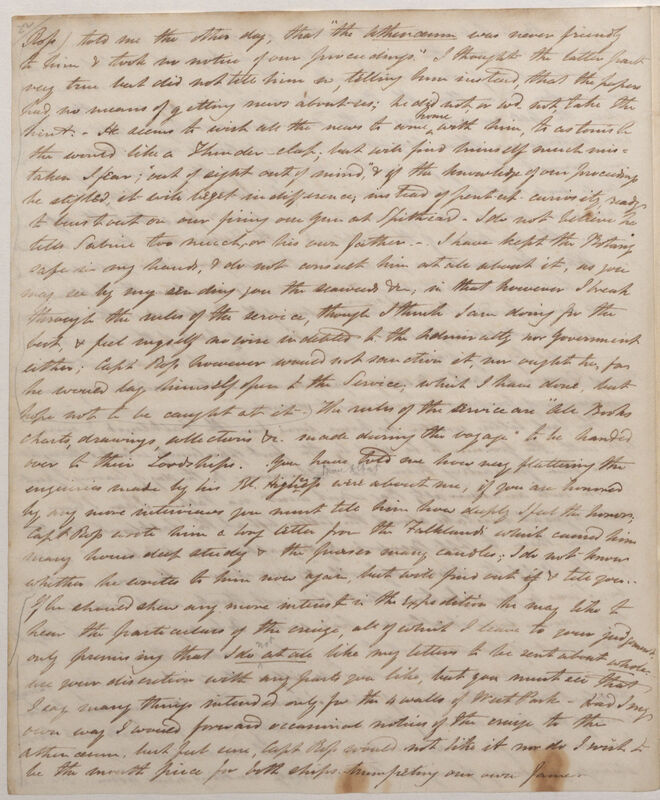 Ross) told me the other day, that "the Athenæum was never friendly
to him & took no notice of our proceedings." I thought the latter part
very true but did not tell him so, telling him instead, that the papers
had no means of getting news about us; he did not or wd. not take the
hint. – He seems to wish all the news to come home with him, to astonish
the world like a Thunder-clap; but will find himself much mis-
taken I fear; "out of sight out of mind," & if the knowledge of our proceedings
be stifled, it will beget indifference, instead of pent up curiosity, ready
to burst out on our firing one gun at Spithead – I do not believe he
tells Sabine too much, or his own father. – I have kept the Botany
safe in my hands, & do not consult him at all about it, as you
may see by my sending you the seaweeds &c, in that however I break
through the rules of the service, though I think I am doing for the
best, & feel myself no wise indebted to the Admiralty nor Government
either; Capt Ross however would not sanction it, nor ought he, for
he would lay himself open to the Service, which I have done, but
hope not to be caught at it – The rules of the service are "All Books
charts, drawings, collections &c. made during the voyage" to be handed
over to their Lordships. You have told me how very flattering the
enquiries made by his Rl. Highness were about me, if you are honored
by any more interviews you must tell him how deeply I feel the honor;
Capt Ross wrote him a long letter from the Falklands which caused him
many hours deep study & the purser many candles; I do not know
whether he writes to him now again, but will find out if & tell you. .
If he should shew any more interest in the Expedition he may like to
hear the particulars of the cruize, all of which I leave to your judgement
only premising that I do not at all like my letters to be sent about whole.
use your discretion with any parts you like, but you must see that
I say many things intended only for the 4 walls of West Park – Had I my
own way I would forward occasional notices of the cruize to the
Athenæum, but Capt Ross would not like it nor do I wish to
be the mouth piece for both ships trumpeting our own fame